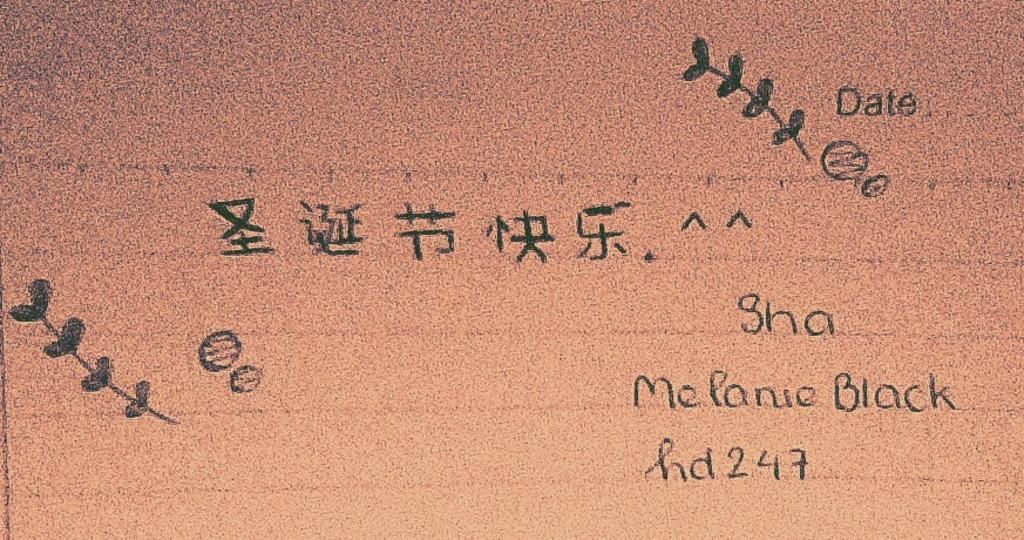 Date
圣诞节快乐. ^^
Sha
Melanie Black
hd247